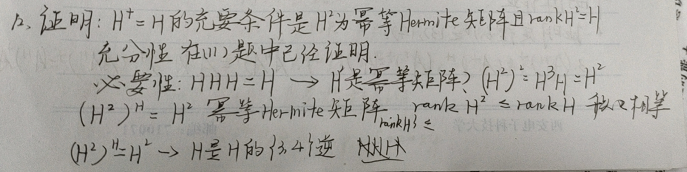 12. 证明: H⁺ = H 的充要条件是 H²为幂等Hermite矩阵且 rank H² = H
充分性 在(11)题中已经证明.
必要性: HHH = H → H²是幂等矩阵? (H²)² = H³H = H²
(H²)ᴴ = H² 幂等Hermite矩阵 rank H² ≤ rank H 相等
rank H³ ≤
(H²)ᴴ = H² → H是H的{3,4}逆